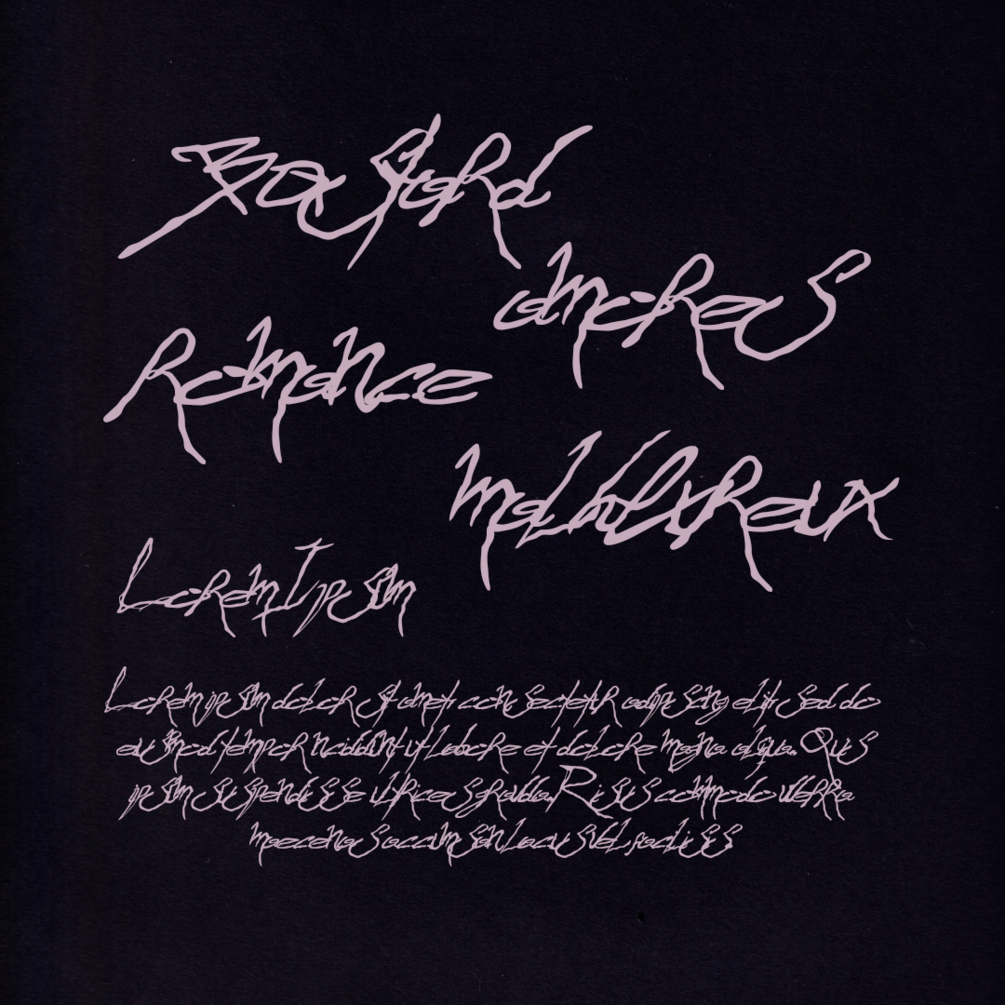 Bastard
amoreus
Romance
malheureux
Lorem Ipsum
Lorem ipsum dolor sit amet, consectetur adipiscing elit, sed do
eiusmod tempor incididunt ut labore et dolore magna aliqua. Quis
ipsum suspendisse ultrices gravida. Risus commodo viverra
maecenas accumsan lacus vel facilisis